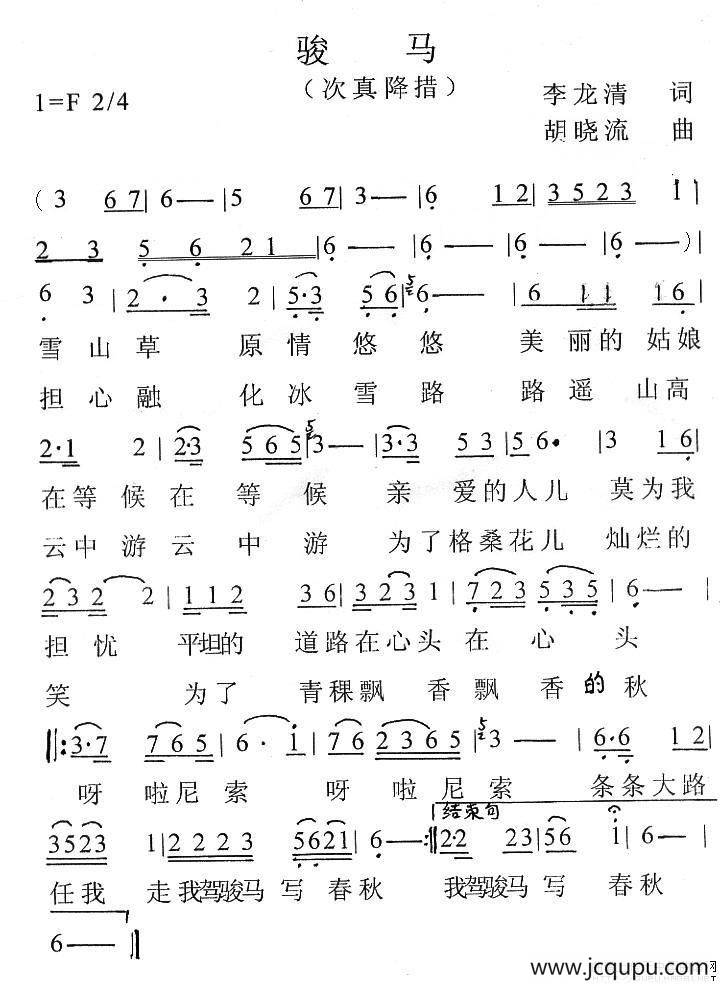 骏 马
(次真降措)
1=F 2/4
李龙清 词
胡晓流 曲
(3 67| 6—|5 67| 3—|6 12| 3523 1|
2 3 5 6 21|6—|6—|6—|6—)|
6 3|2·3 2|5·3 56|5 6—|6 11 16|
雪山草 原情悠悠 美丽的姑娘
担心融 化冰雪路 路遥山高
2·1 2|2·3 565|5 3—|3·3 53|56·|3 16|
在等候在等候亲爱的人儿莫为我
云中游云中游为了格桑花儿灿烂的
232 2|112 36|323 1|723 535|6—|
担忧 平坦的 道路在心头在心头
笑 为了 青稞飘香飘香的秋
‖:3·7 765|6·i 76 2365|5 3—|6·6 12|
呀啦尼索 呀啦尼索 条条大路
结束句
3523 1|2223 5621|6—:‖2·2 23|56 1|6—|
任我 走我驾骏马写春秋 我驾骏马写春秋
6—‖
www.jcqupu.com